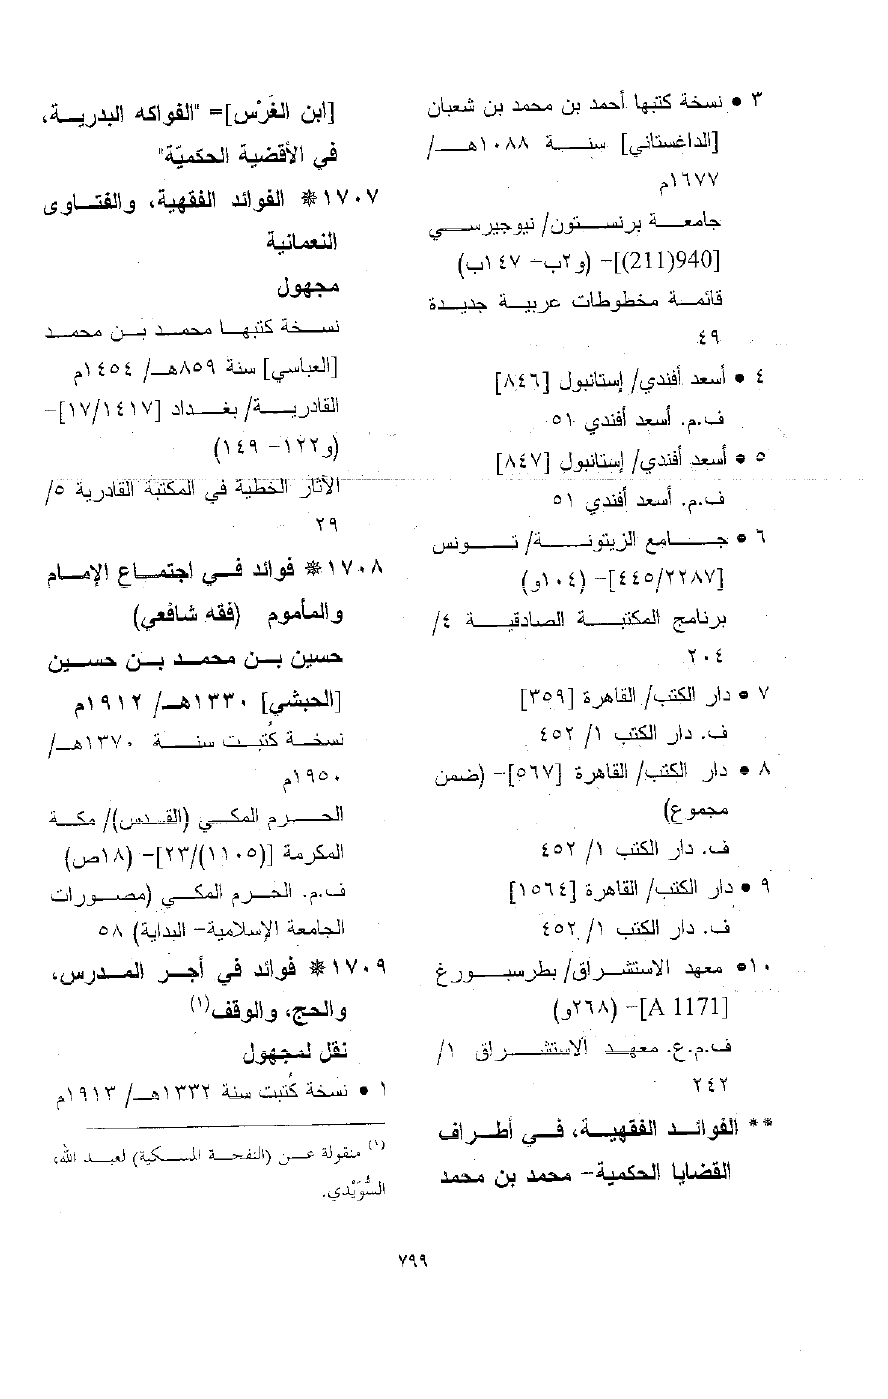 ٣ • نسخة كتبها أحمد بن محمد بن شعبان
[الداغستاني] سنة ١٠٨٨هـ/
١٦٧٧م
جامعة برنستون/ نيوجيرسي
[940(211)]– (و٢ب– ١٤٧ب)
قائمة مخطوطات عربية جديدة
٤٩
٤ • أسعد أفندي/ إستانبول [٨٤٦]
ف.م. أسعد أفندي ٥١
٥ • أسعد أفندي/ إستانبول [٨٤٧]
ف.م. أسعد أفندي ٥١
٦ • جامع الزيتونة/ تونس
[٤٤٥/٢٢٨٧]– (١٠٤و)
برنامج المكتبة الصادقية ٤/
٢٠٤
٧ • دار الكتب/ القاهرة [٣٥٩]
ف. دار الكتب ١/ ٤٥٢
٨ • دار الكتب/ القاهرة [٥٦٧]– (ضمن
مجموع)
ف. دار الكتب ١/ ٤٥٢
٩ • دار الكتب/ القاهرة [١٥٦٤]
ف. دار الكتب ١/ ٤٥٢
١٠• معهد الاستشراق/ بطرسبورغ
[A 1171]– (٢٦٨و)
ف.م.ع. معهد الاستشراق ١/
٢٤٢
** الفوائد الفقهية، في أطراف
القضايا الحكمية– محمد بن محمد
[ابن الغَرْس]= "الفواكه البدرية،
في الأقضية الحكميّة"
١٧٠٧* الفوائد الفقهية، والفتاوى
النعمانية
مجهول
نسخة كتبها محمد بن محمد
[العباسي] سنة ٨٥٩هـ/ ١٤٥٤م
القادرية/ بغداد [١٧/١٤١٧]–
(و١٢٢– ١٤٩)
الآثار الخطية في المكتبة القادرية ٥/
٢٩
١٧٠٨* فوائد في اجتماع الإمام
والمأموم (فقه شافعي)
حسين بن محمد بن حسين
[الحبشي] ١٣٣٠هـ/ ١٩١٢م
نسخة كُتبت سنة ١٣٧٠هـ/
١٩٥٠م
الحرم المكي (القدس)/ مكة
المكرمة [(١١٠٥)/٢٣]– (١٨ص)
ف.م. الحرم المكي (مصورات
الجامعة الإسلامية– البداية) ٥٨
١٧٠٩* فوائد في أجر المدرس،
والحج، والوقف(١)
نقل لمجهول
١ • نسخة كُتبت سنة ١٣٣٢هـ/ ١٩١٣م
(١) منقولة عن (النفحة المسكية) لعبد الله،
السُّوَيْدي.
٧٩٩